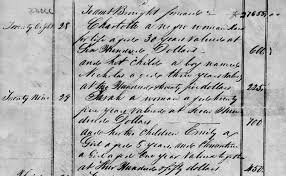 To amt Brought forward $27655.00
Twenty Eight 28 Charlotte a negro woman slave
for life aged 30 Years valued at
Six Hundred Dollars 600
and her child a boy named
Nicholas aged three years valued
at two Hundred twenty five dollars 225.
Twenty Nine 29 Sarah a woman aged thirty
five years valued at Seven Hun
dred Dollars 700
and her children Emily a
Girl aged 5 years and
a Girl aged One year valued together
at Four Hundred & fifty dollars 450